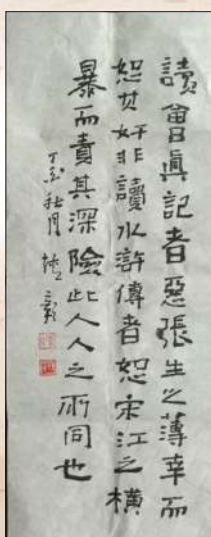 讀會眞記者惡張生之薄幸而
恕其奸非讀水滸傳者恕宋江之橫
暴而責其深險此人人之所同也
丁亥秋月